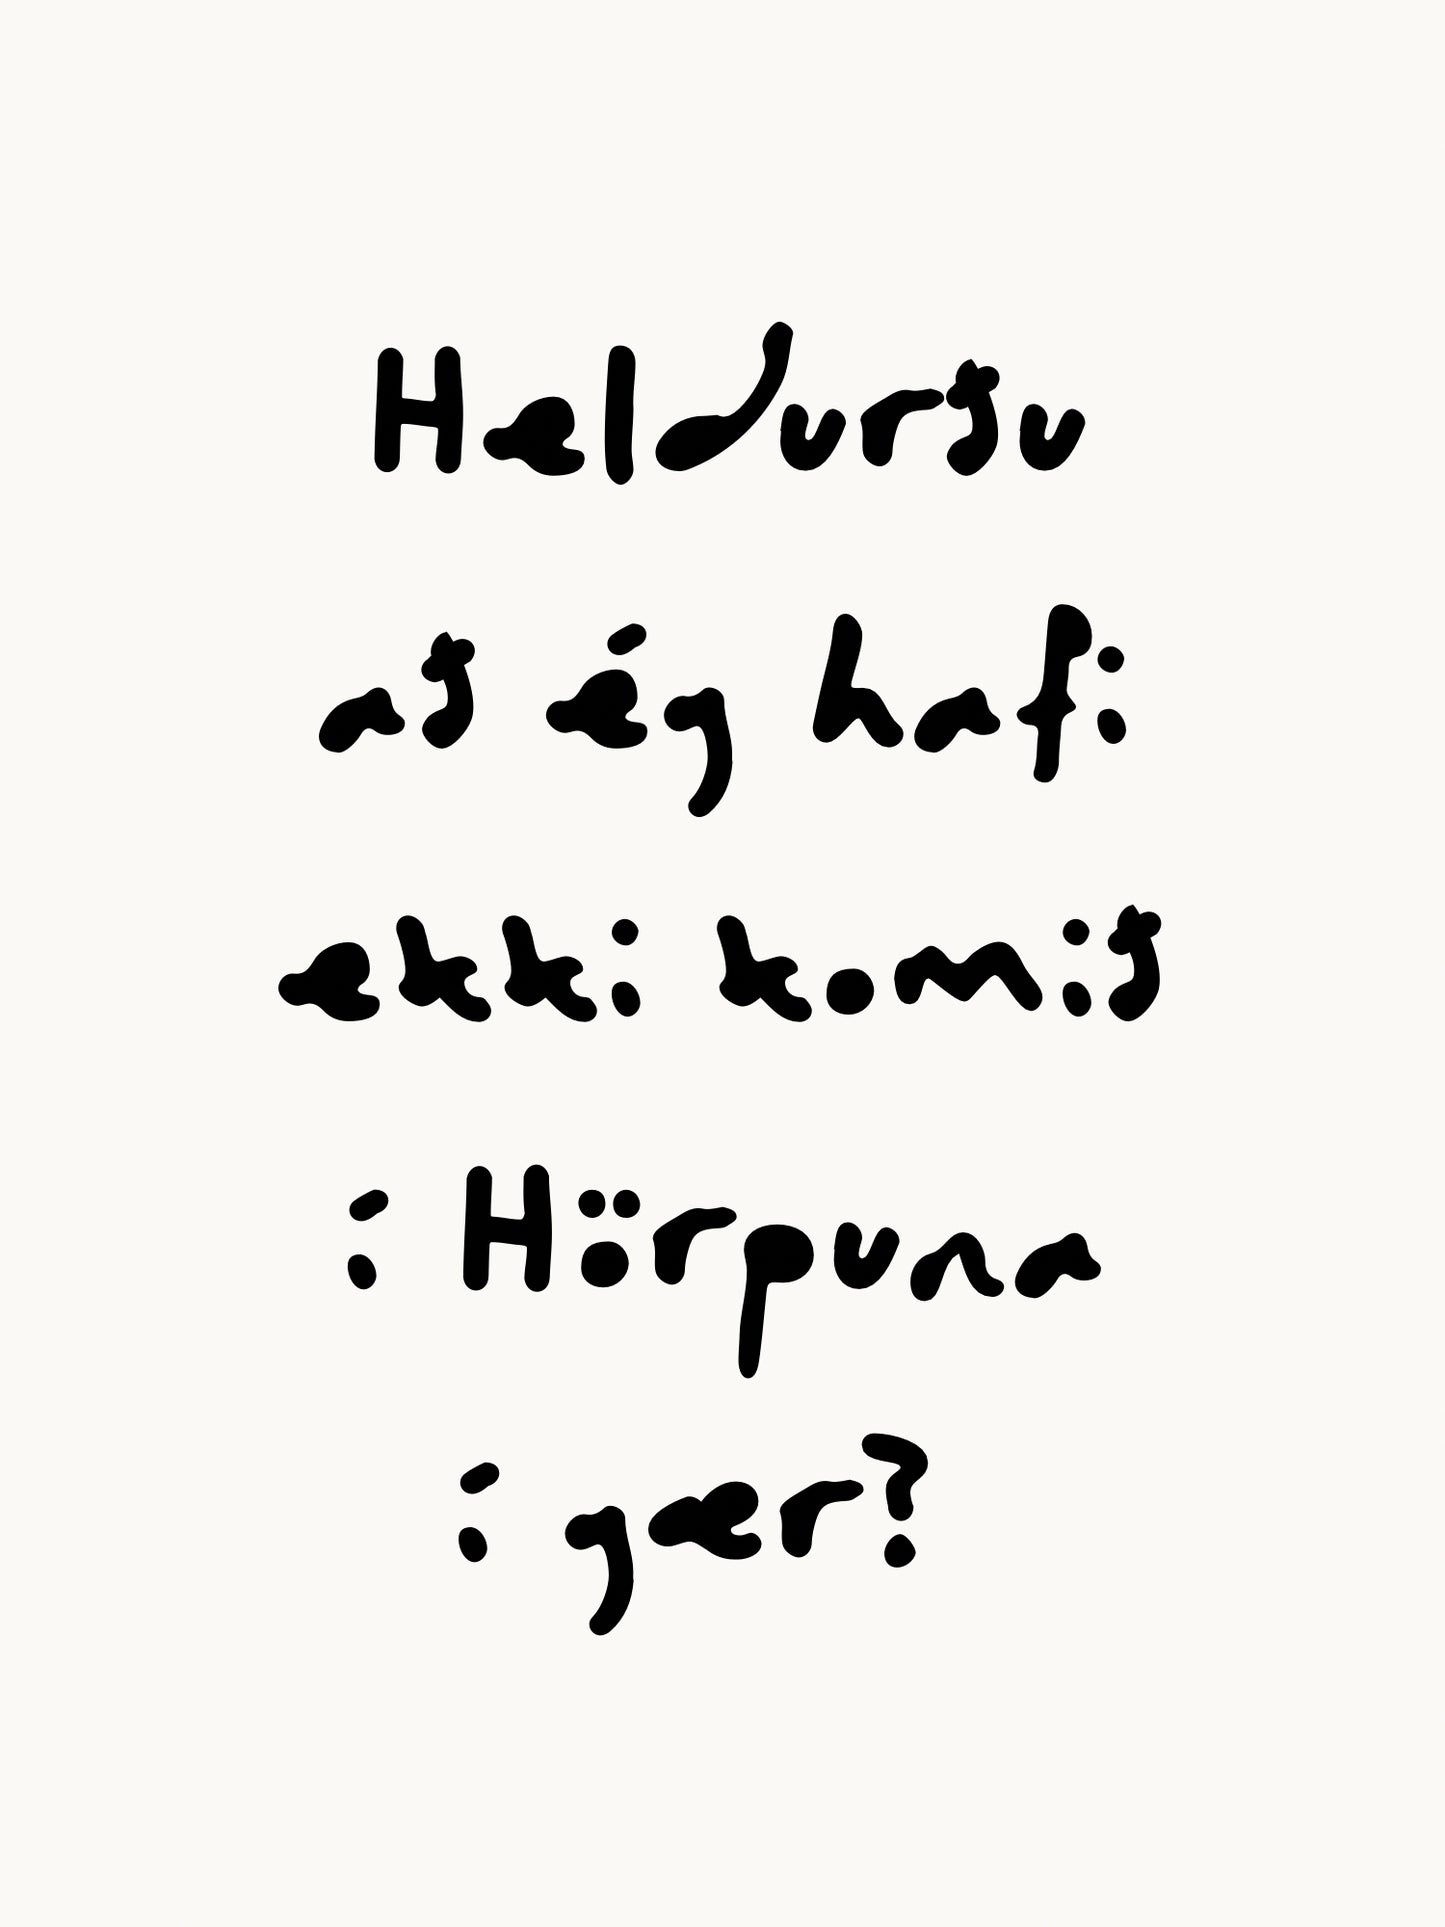 Heldurðu
að ég hafi
ekki komið
í Hörpuna
í gær?